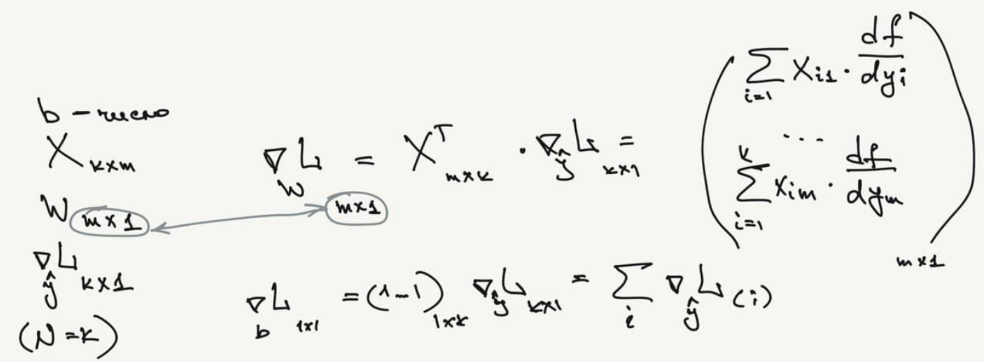 b – число
X k×m
W m×1
∇ŷ L k×1
(N = k)
∇W L m×1 = Xᵀ m×k · ∇ŷ L k×1 =
∑ i=1 Xi1 · df/dyi
...
∑ i=1 k xim · df/dym
m×1
∇b L 1×1 = (1–1) 1×k ∇ŷ L k×1 = ∑ i ∇ŷ L (i)